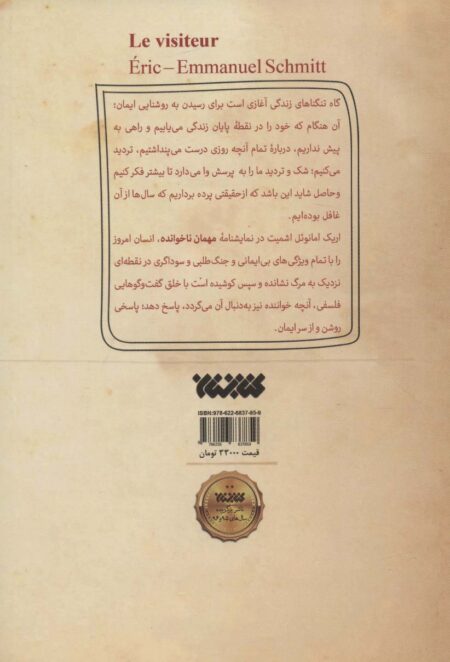 Le visiteur
Éric – Emmanuel Schmitt
گاه تنگناهای زندگی آغازی است برای رسیدن به روشنایی ایمان؛
آن هنگام که خود را در نقطهٔ پایان زندگی می‌یابیم و راهی به
پیش نداریم، دربارهٔ تمام آنچه روزی درست می‌پنداشتیم، تردید
می‌کنیم؛ شک و تردید ما را به پرسش وا می‌دارد تا بیشتر فکر کنیم
و حاصل شاید این باشد که از حقیقتی پرده برداریم که سال‌ها از آن
غافل بوده‌ایم.
اریک امانوئل اشمیت در نمایشنامهٔ مهمان ناخوانده، انسان امروز
را با تمام ویژگی‌های بی‌ایمانی و جنگ‌طلبی و سوداگری در نقطه‌ای
نزدیک به مرگ نشانده و سپس کوشیده است با خلق گفت‌وگوهایی
فلسفی، آنچه خواننده نیز به‌دنبال آن می‌گردد، پاسخ دهد؛ پاسخی
روشن و از سر ایمان.
ISBN: 978-622-6837-85-9
قیمت ۳۳۰۰۰ تومان